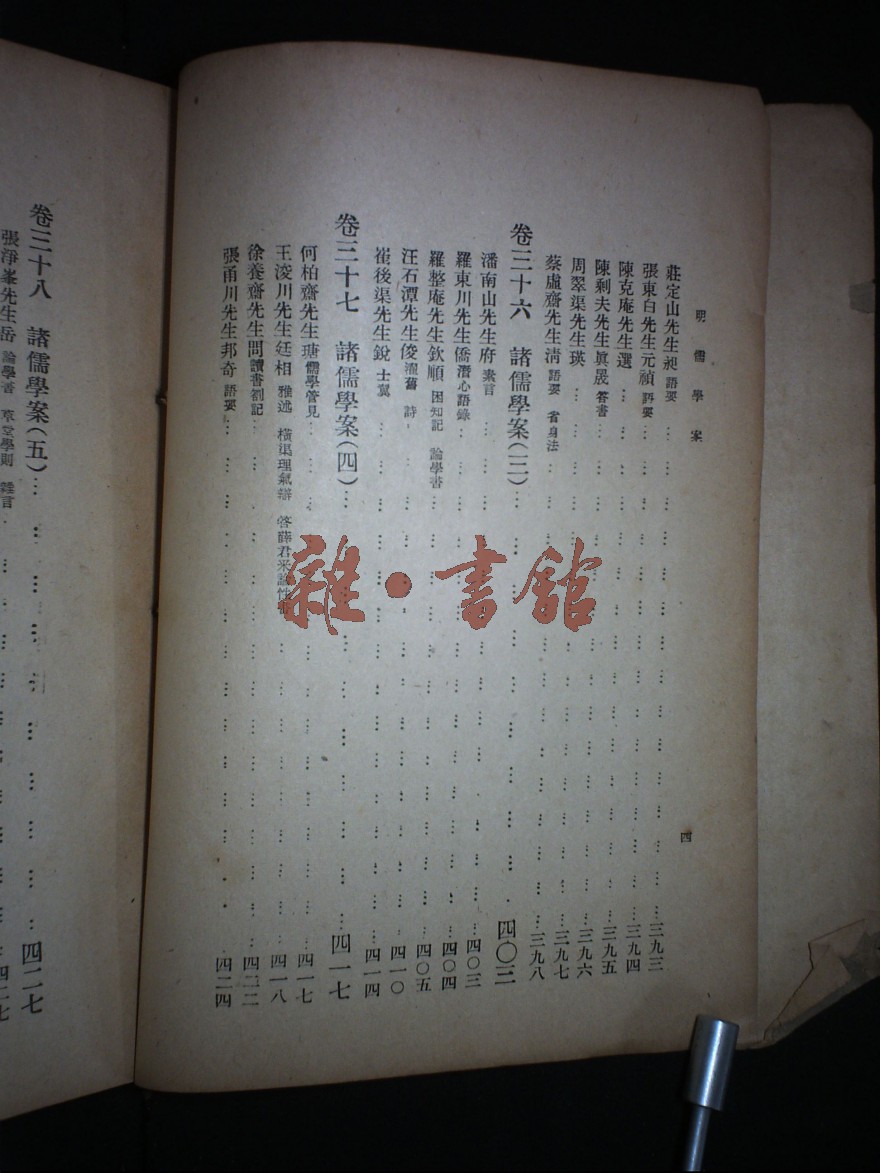 明儒學案
四
莊定山先生昶 語要 … 三九三
張東白先生元禎 語要 … 三九四
陳克庵先生選 … 三九五
陳剩夫先生眞晟 答書 … 三九六
周翠渠先生瑛 … 三九七
蔡虛齋先生淸 語要 省身法 … 三九八
卷三十六 諸儒學案(三) … 四〇三
潘南山先生府 素言 … 四〇三
羅東川先生僑 潛心語錄 … 四〇四
羅整庵先生欽順 困知記 論學書 … 四〇五
汪石潭先生俊 濯舊 詩 … 四一〇
崔後渠先生銑 士翼 … 四一四
卷三十七 諸儒學案(四) … 四一七
何柏齋先生瑭 儒學管見 … 四一七
王浚川先生廷相 雅述 橫渠理氣辯 答薛君采論性書 … 四一八
徐養齋先生問 讀書劄記 … 四二二
張甬川先生邦奇 語要 … 四二四
卷三十八 諸儒學案(五) … 四二七
張淨峯先生岳 論學書 草堂學則 雜言 … 四二七
雜·書館